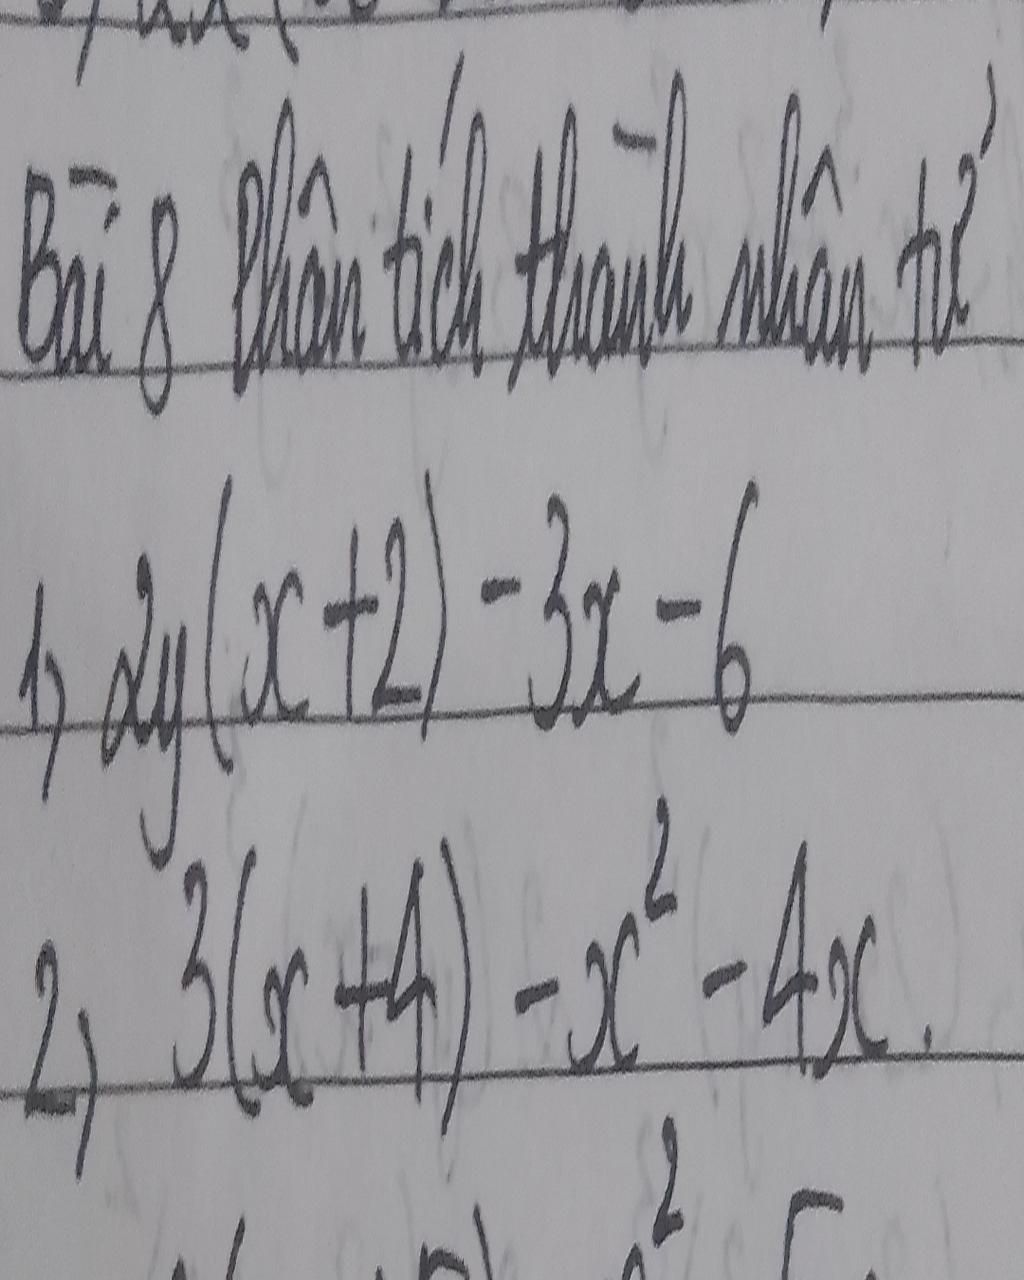 Bài 8 Phân tích thành nhân tử
1, 2y(x+2) - 3x - 6
2, 3(x+4) - x² - 4x.